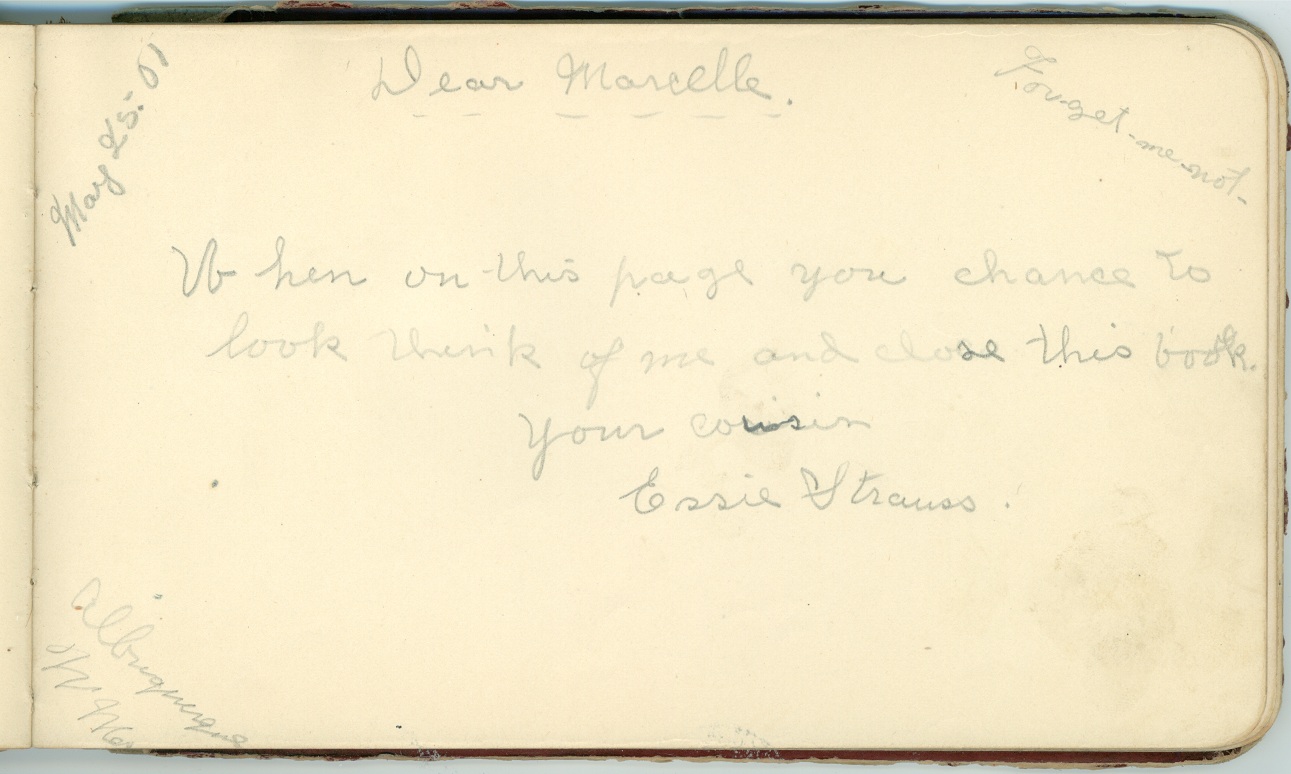 May 25-01
Dear Marcelle.
Forget-me-not-
When on this page you chance to
look think of me and close this book.
Your cousin
Essie Strauss.
Albuquerque
N. Mex